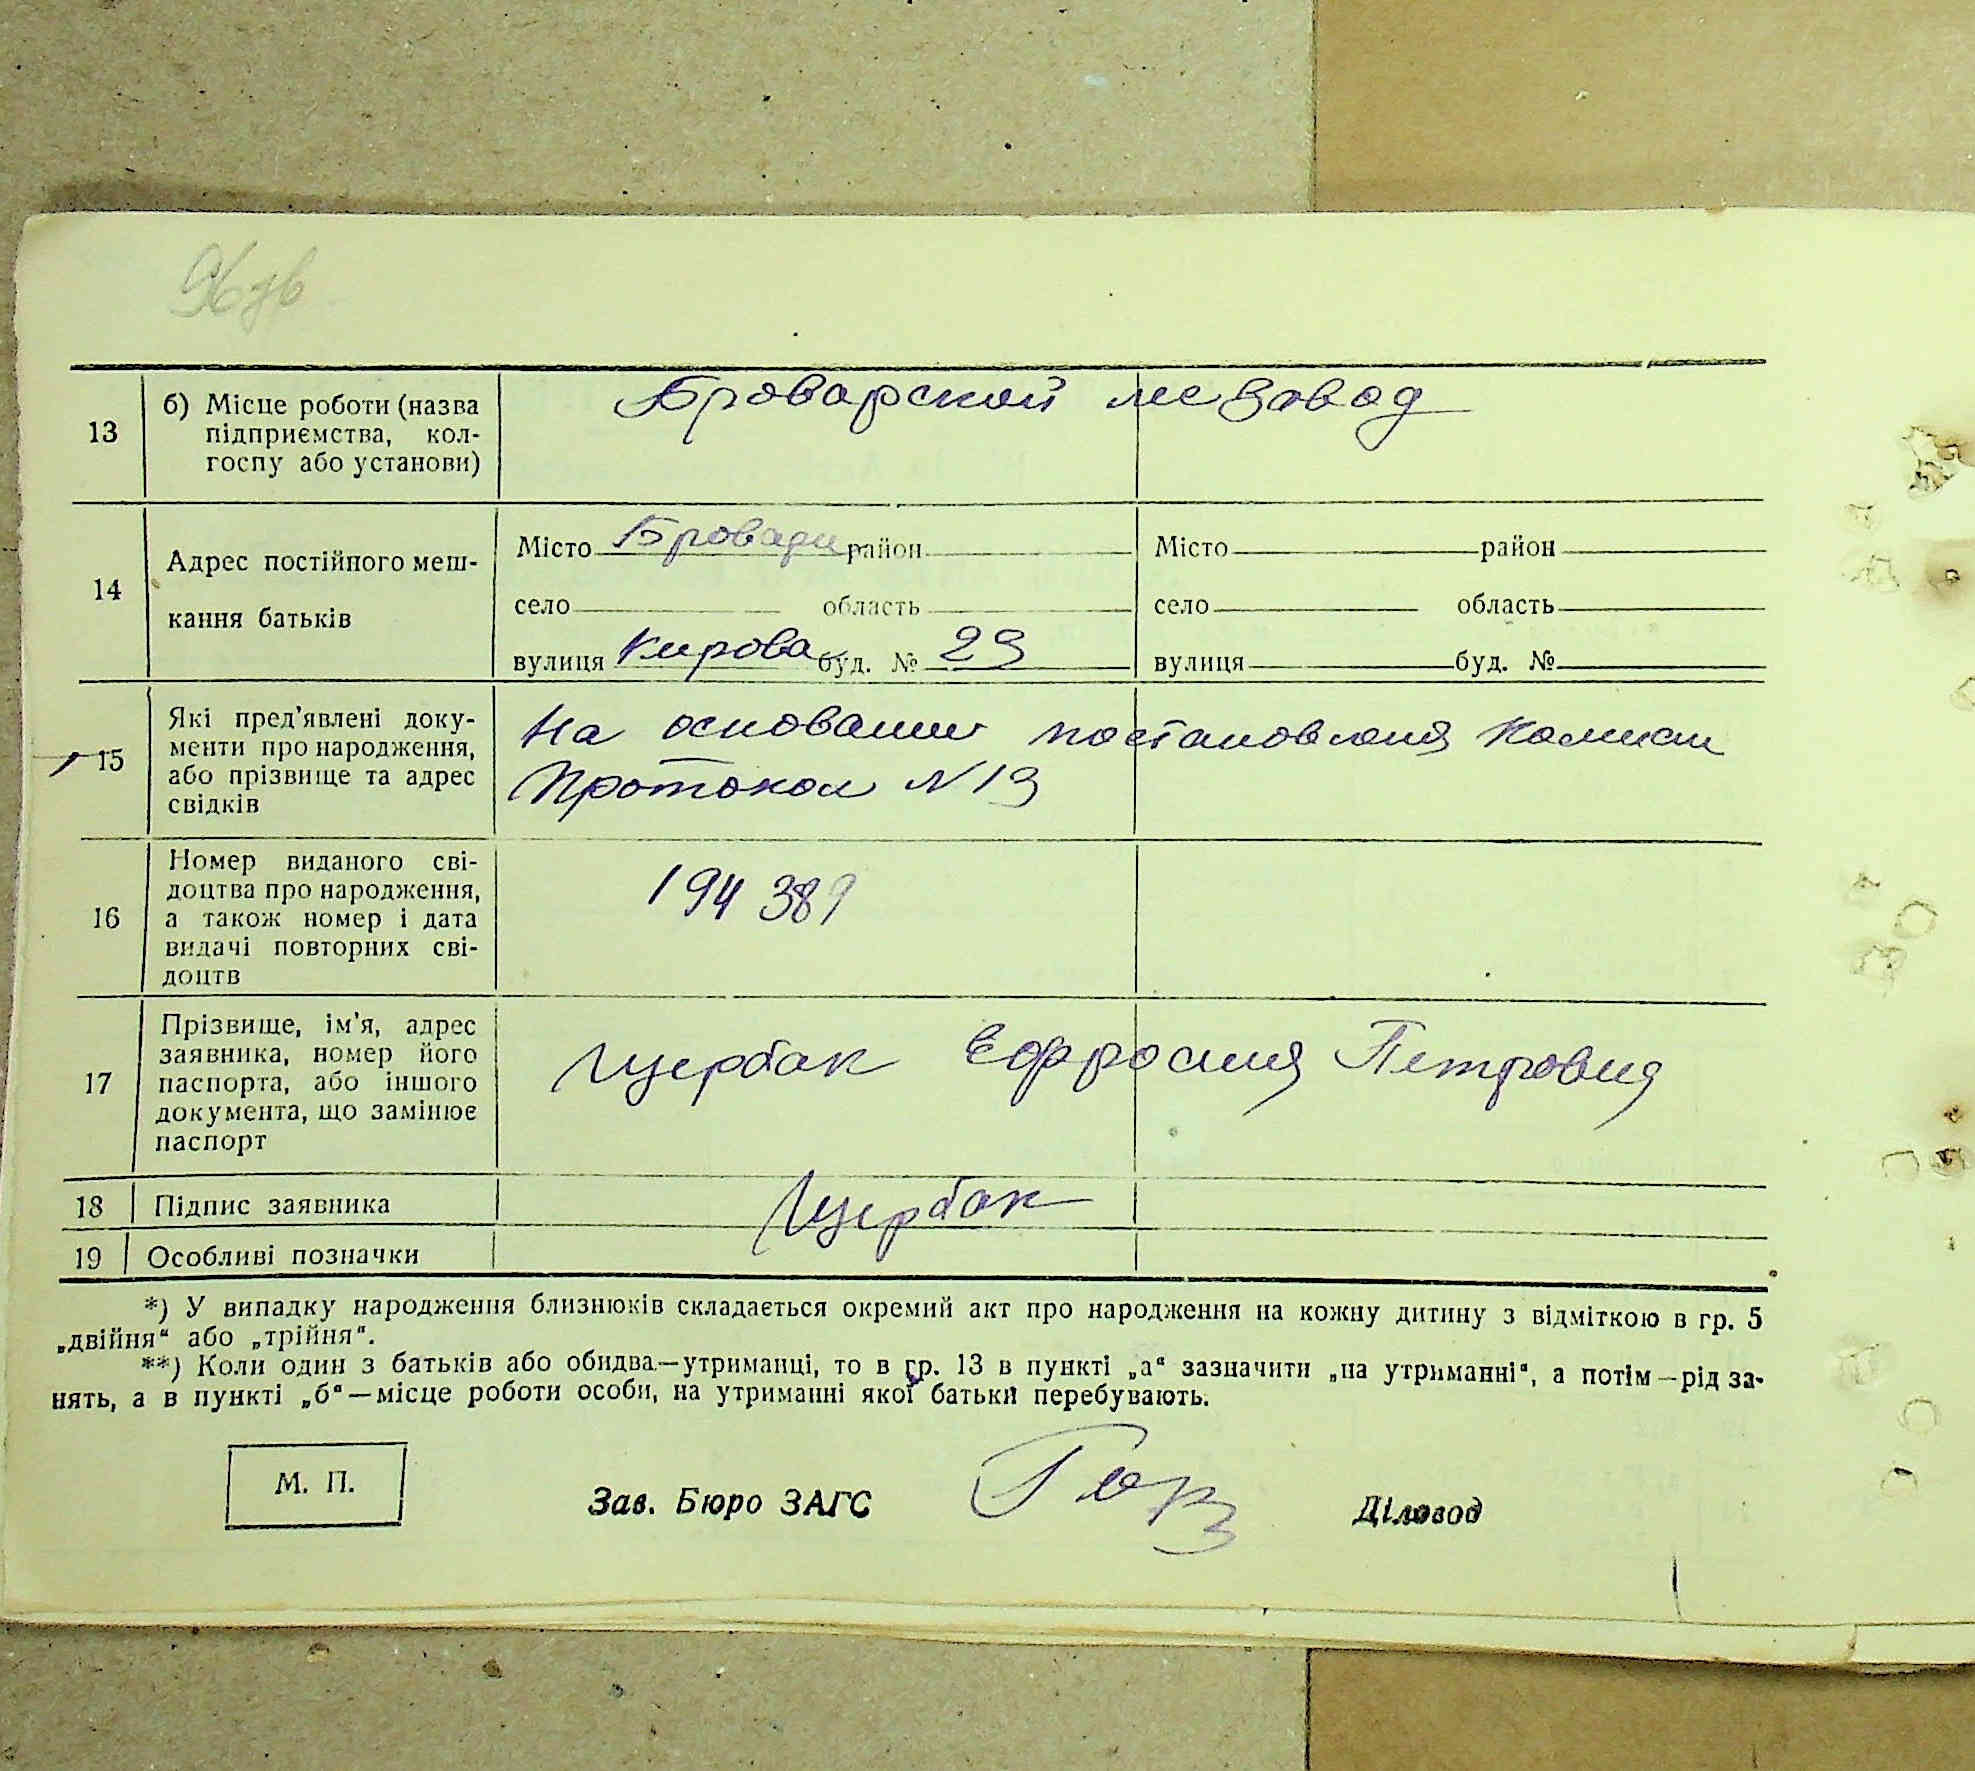 96 зв
13
б) Місце роботи (назва
підприємства, кол-
госпу або установи)
Броварской завод
14
Адрес постійного меш-
кання батьків
Місто Бровари район Місто район
село область село область
вулиця Кирова буд. № 29 вулиця буд. №
15
Які пред'явлені доку-
менти про народження,
або прізвище та адрес
свідків
На основании постановления Комисии
Протокол N 19
16
Номер виданого сві-
доцтва про народження,
а також номер і дата
видачі повторних сві-
доцтв
194389
17
Прізвище, ім'я, адрес
заявника, номер його
паспорта, або іншого
документа, що замінює
паспорт
Щербак Ефросиия Петровна
18 Підпис заявника
Щербак
19 Особливі позначки
*) У випадку народження близнюків складається окремий акт про народження на кожну дитину з відміткою в гр. 5
„двійня“ або „трійня“.
**) Коли один з батьків або обидва—утриманці, то в гр. 13 в пункті „а“ зазначити „на утриманні“, а потім—рід за-
нять, а в пункті „б“—місце роботи особи, на утриманні якої батьки перебувають.
М. П.
Зав. Бюро ЗАГС
Діловод